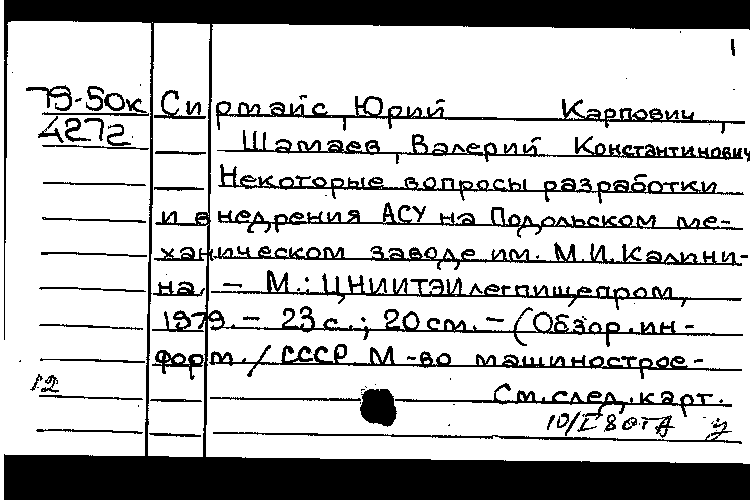 1
79-50к Сирмайс, Юрий Карпович,
4272 Шамаев, Валерий Константинович
Некоторые вопросы разработки
и внедрения АСУ на Подольском ме-
ханическом заводе им. М.И. Калини-
на. – М.: ЦНИИТЭИлегпищепром,
1979. – 23 с.; 20 см. – (Обзор. ин-
форм. / СССР М-во машинострое-
12 См. след. карт.